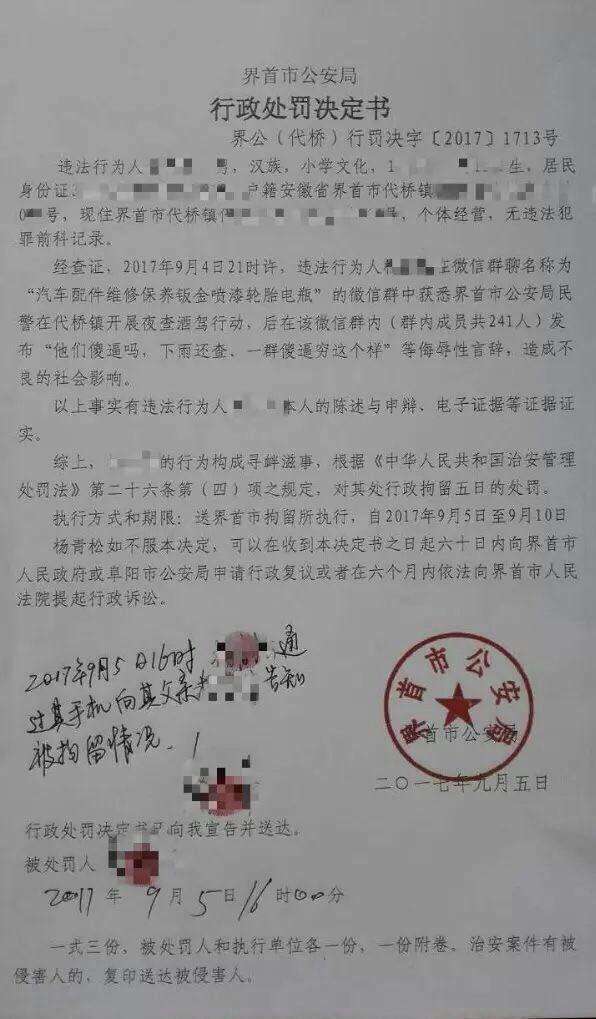 界首市公安局
行政处罚决定书
界公（代桥）行罚决字〔2017〕1713号
违法行为人 汉族，小学文化，1 生，居民
身份证 户籍安徽省界首市代桥镇
0 号，现住界首市代桥镇 个体经营，无违法犯
罪前科记录。
经查证，2017年9月4日21时许，违法行为人 在微信群聊名称为
“汽车配件维修保养钣金喷漆轮胎电瓶”的微信群中获悉界首市公安局民
警在代桥镇开展夜查酒驾行动，后在该微信群内（群内成员共241人）发
布“他们傻逼吗，下雨还查、一群傻逼穷这个样”等侮辱性言辞，造成不
良的社会影响。
以上事实有违法行为人 本人的陈述与申辩、电子证据等证据证
实。
综上， 的行为构成寻衅滋事，根据《中华人民共和国治安管理
处罚法》第二十六条第（四）项之规定，对其处行政拘留五日的处罚。
执行方式和期限：送界首市拘留所执行，自2017年9月5日至9月10日
杨青松如不服本决定，可以在收到本决定书之日起六十日内向界首市
人民政府或阜阳市公安局申请行政复议或者在六个月内依法向界首市人民
法院提起行政诉讼。
2017年9月5日16时 通
过其手机向其父亲 告知
被拘留情况.
界首市公安局
首市公安局
二〇一七年九月五日
行政处罚决定书已向我宣告并送达。
被处罚人
2017年9月5日16时00分
一式三份，被处罚人和执行单位各一份，一份附卷。治安案件有被
侵害人的，复印送达被侵害人。